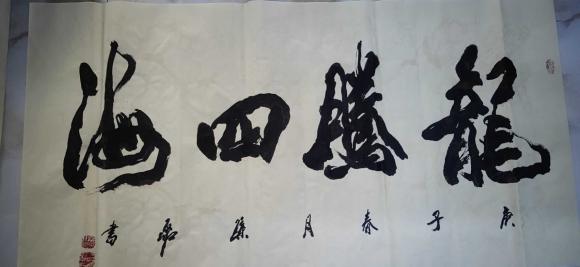 龍騰四海
庚子春月孫書